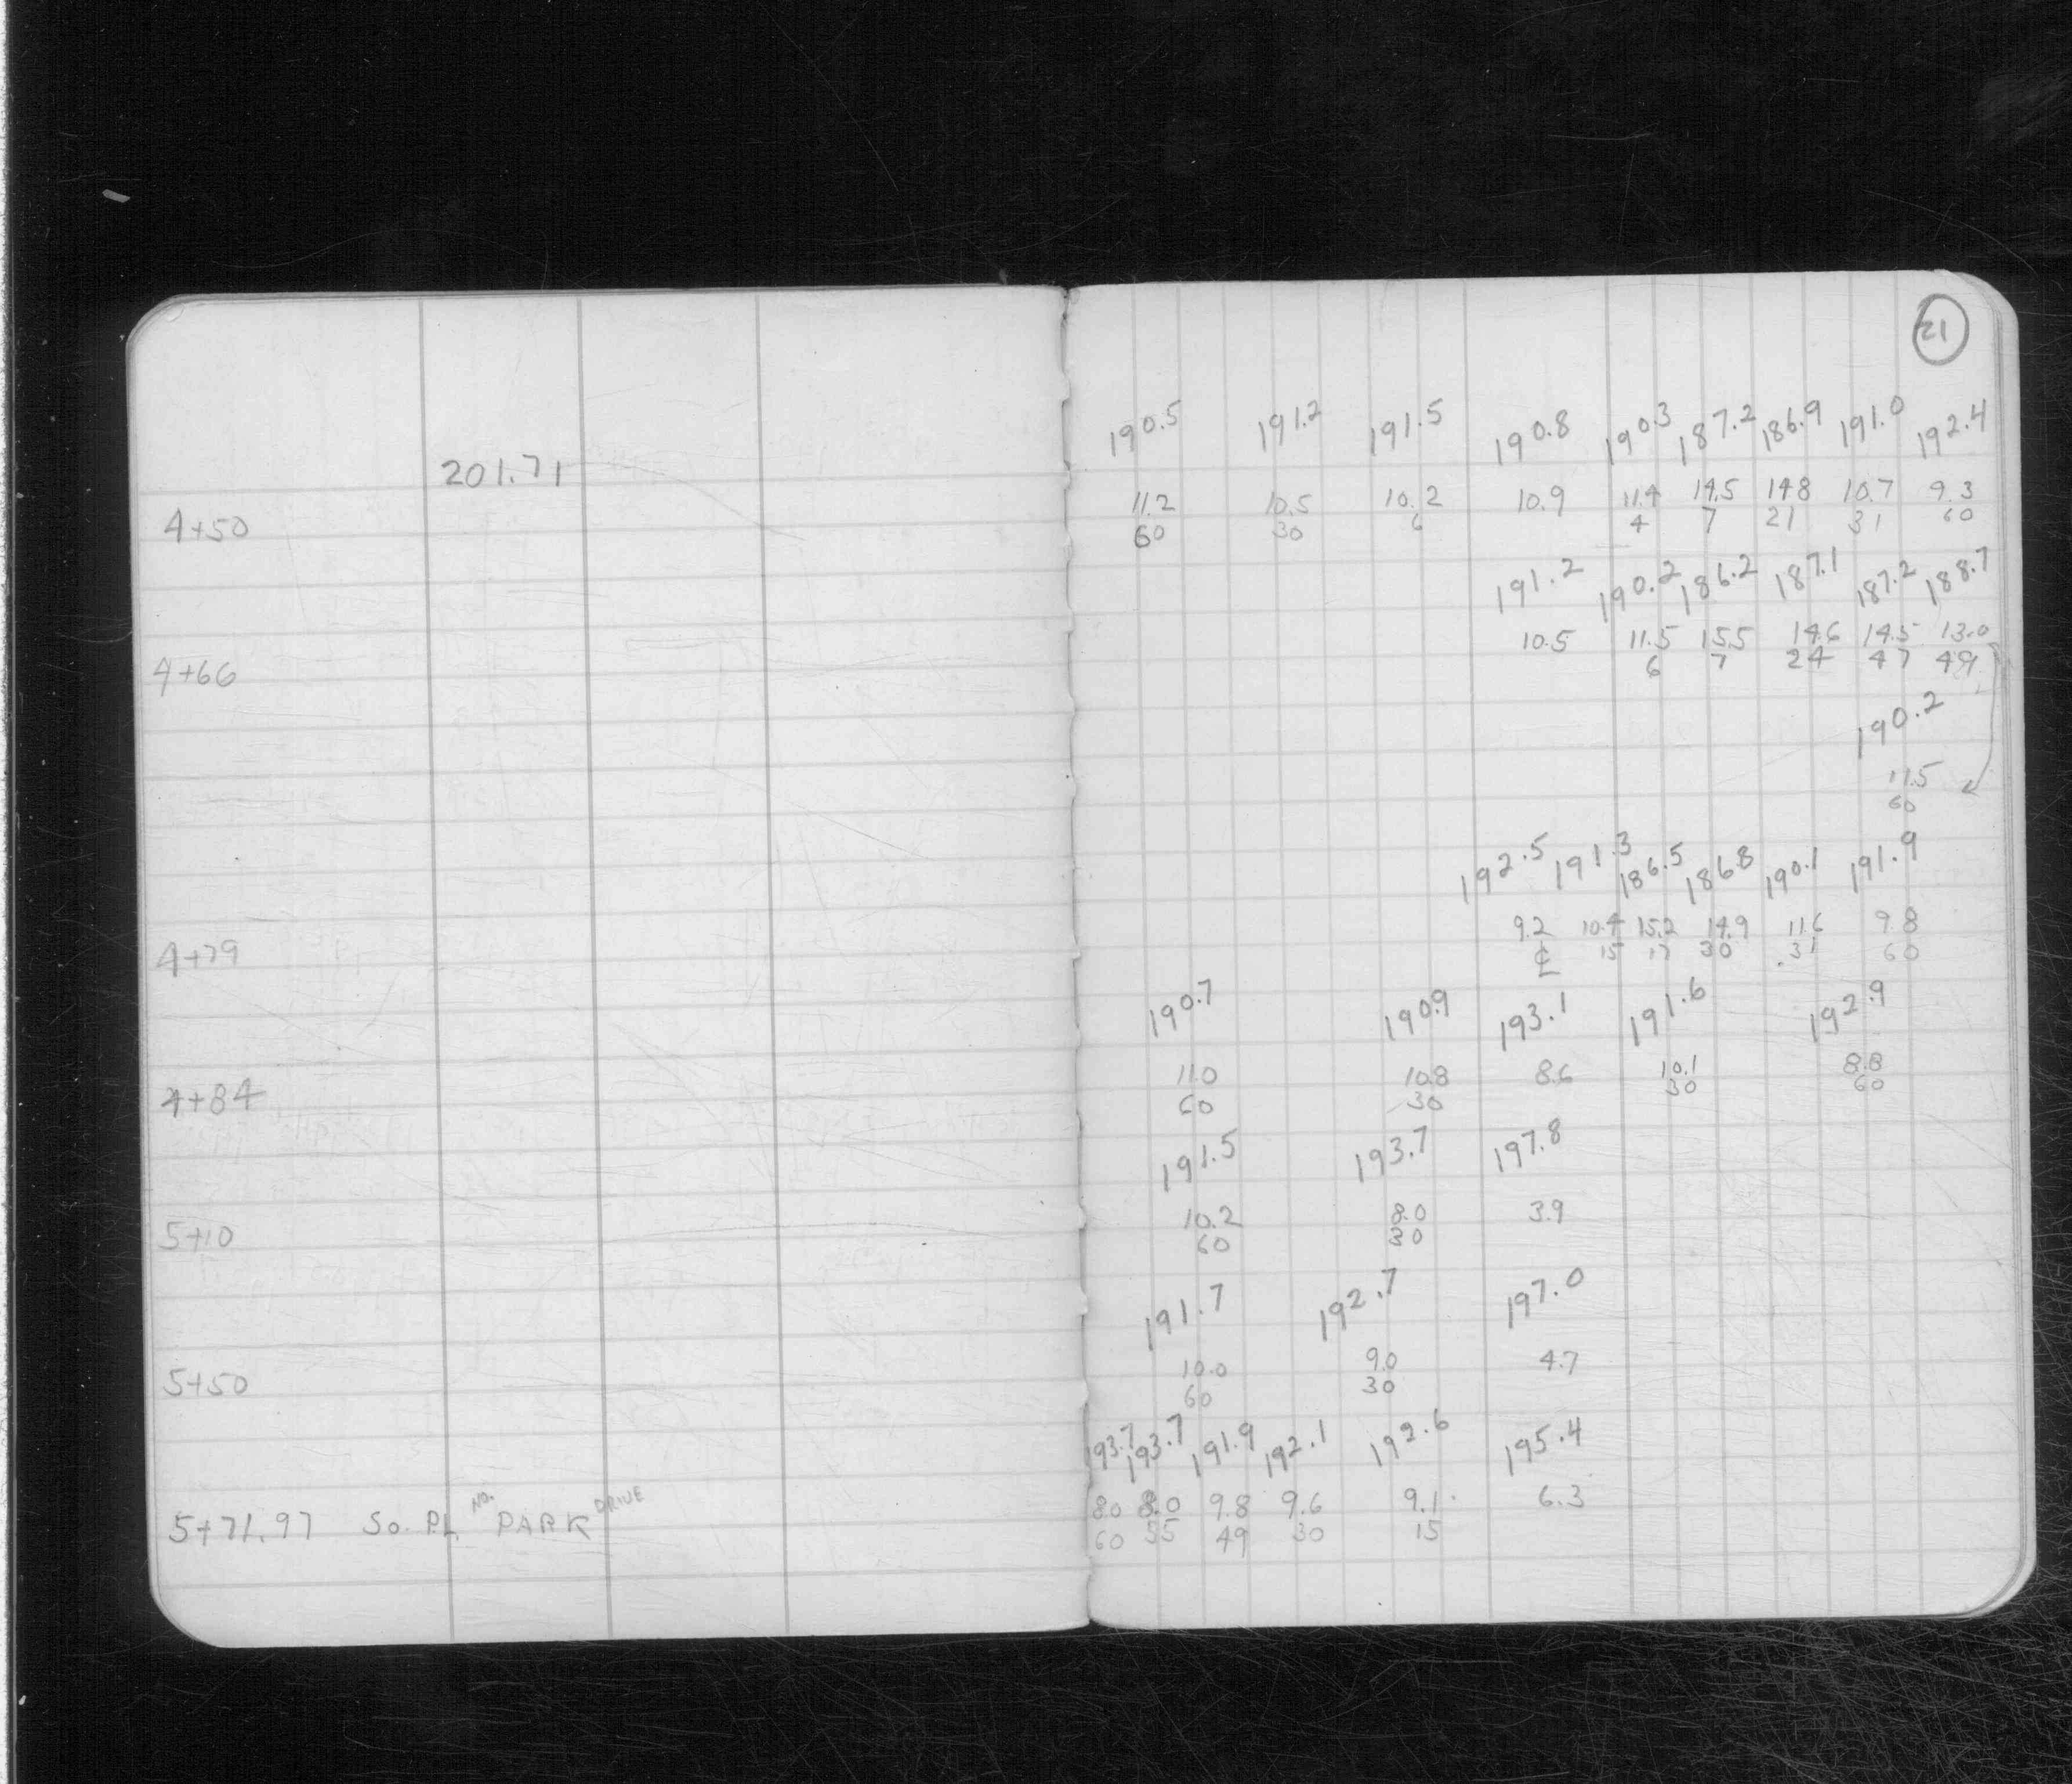 21
190.5 191.2 191.5 190.8 190.3 187.2 186.9 191.0 192.4
201.71
11.2 10.5 10.2 10.9 11.4 14.5 14.8 10.7 9.3
4+50 60 30 6 4 7 21 31 60
191.2 190.2 186.2 187.1 187.2 188.7
10.5 11.5 15.5 14.6 14.5 13.0
4+66 6 7 24 47 49
190.2
11.5
60
192.5 191.3 186.5 186.8 190.1 191.9
9.2 10.4 15.2 14.9 11.6 9.8
4+79 ℄ 15 17 30 31 60
190.7 190.9 193.1 191.6 192.9
11.0 10.8 8.6 10.1 8.8
4+84 60 30 30 60
191.5 193.7 197.8
10.2 8.0 3.9
5+10 60 30
191.7 192.7 197.0
10.0 9.0 4.7
5+50 60 30
193.7 193.7 191.9 192.1 192.6 195.4
8.0 8.0 9.8 9.6 9.1 6.3
5+71.97 So. P.L. No. PARK DRIVE 60 55 49 30 15